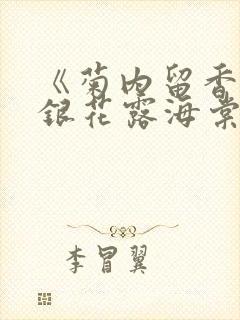 《菊内留香
银花露海棠
李冒翼